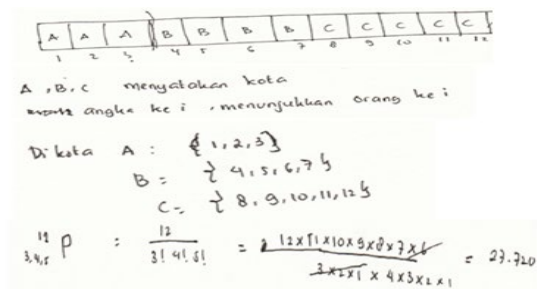 A A A B B B B C C C C C
1 2 3 4 5 6 7 8 9 10 11 12
A, B, C menyatakan kota
angka ke i, menunjukkan orang ke i
Di kota A : {1, 2, 3}
B = {4, 5, 6, 7}
C = {8, 9, 10, 11, 12}
12 P 3,4,5 = 12 / 3! 4! 5! = 12 x 11 x 10 x 9 x 8 x 7 x 6 / 3 x 2 x 1 x 4 x 3 x 2 x 1 = 27.720